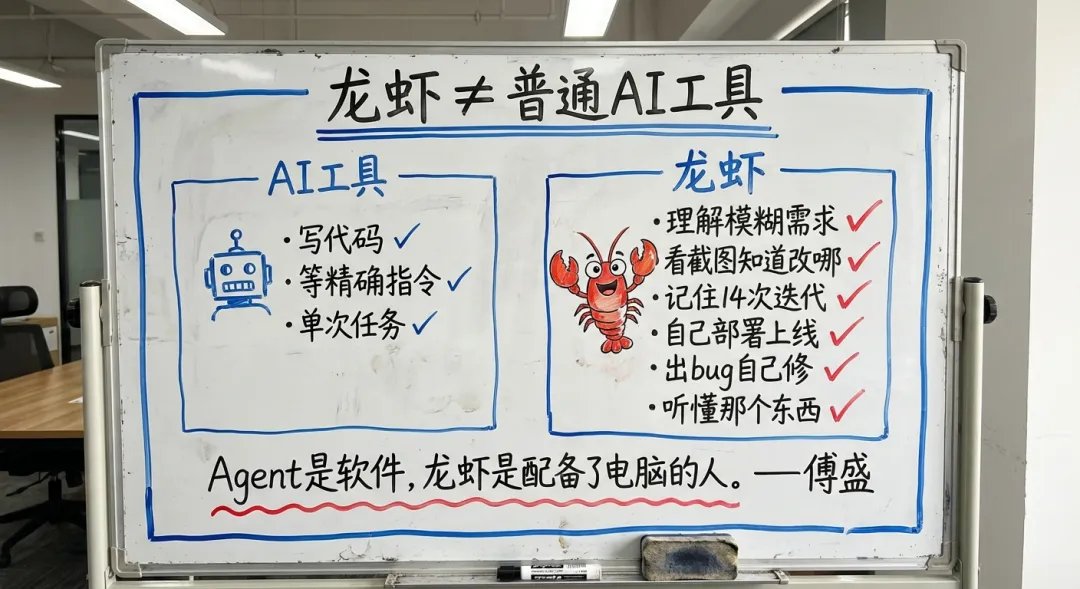 龙虾≠普通AI工具
AI工具
·写代码✓
·等精确指令✓
·单次任务✓
龙虾
·理解模糊需求✓
·看截图知道改哪✓
·记住14次迭代✓
·自己部署上线✓
·出bug自己修✓
·听懂那个东西✓
Agent是软件,龙虾是配备了电脑的人。——傅盛